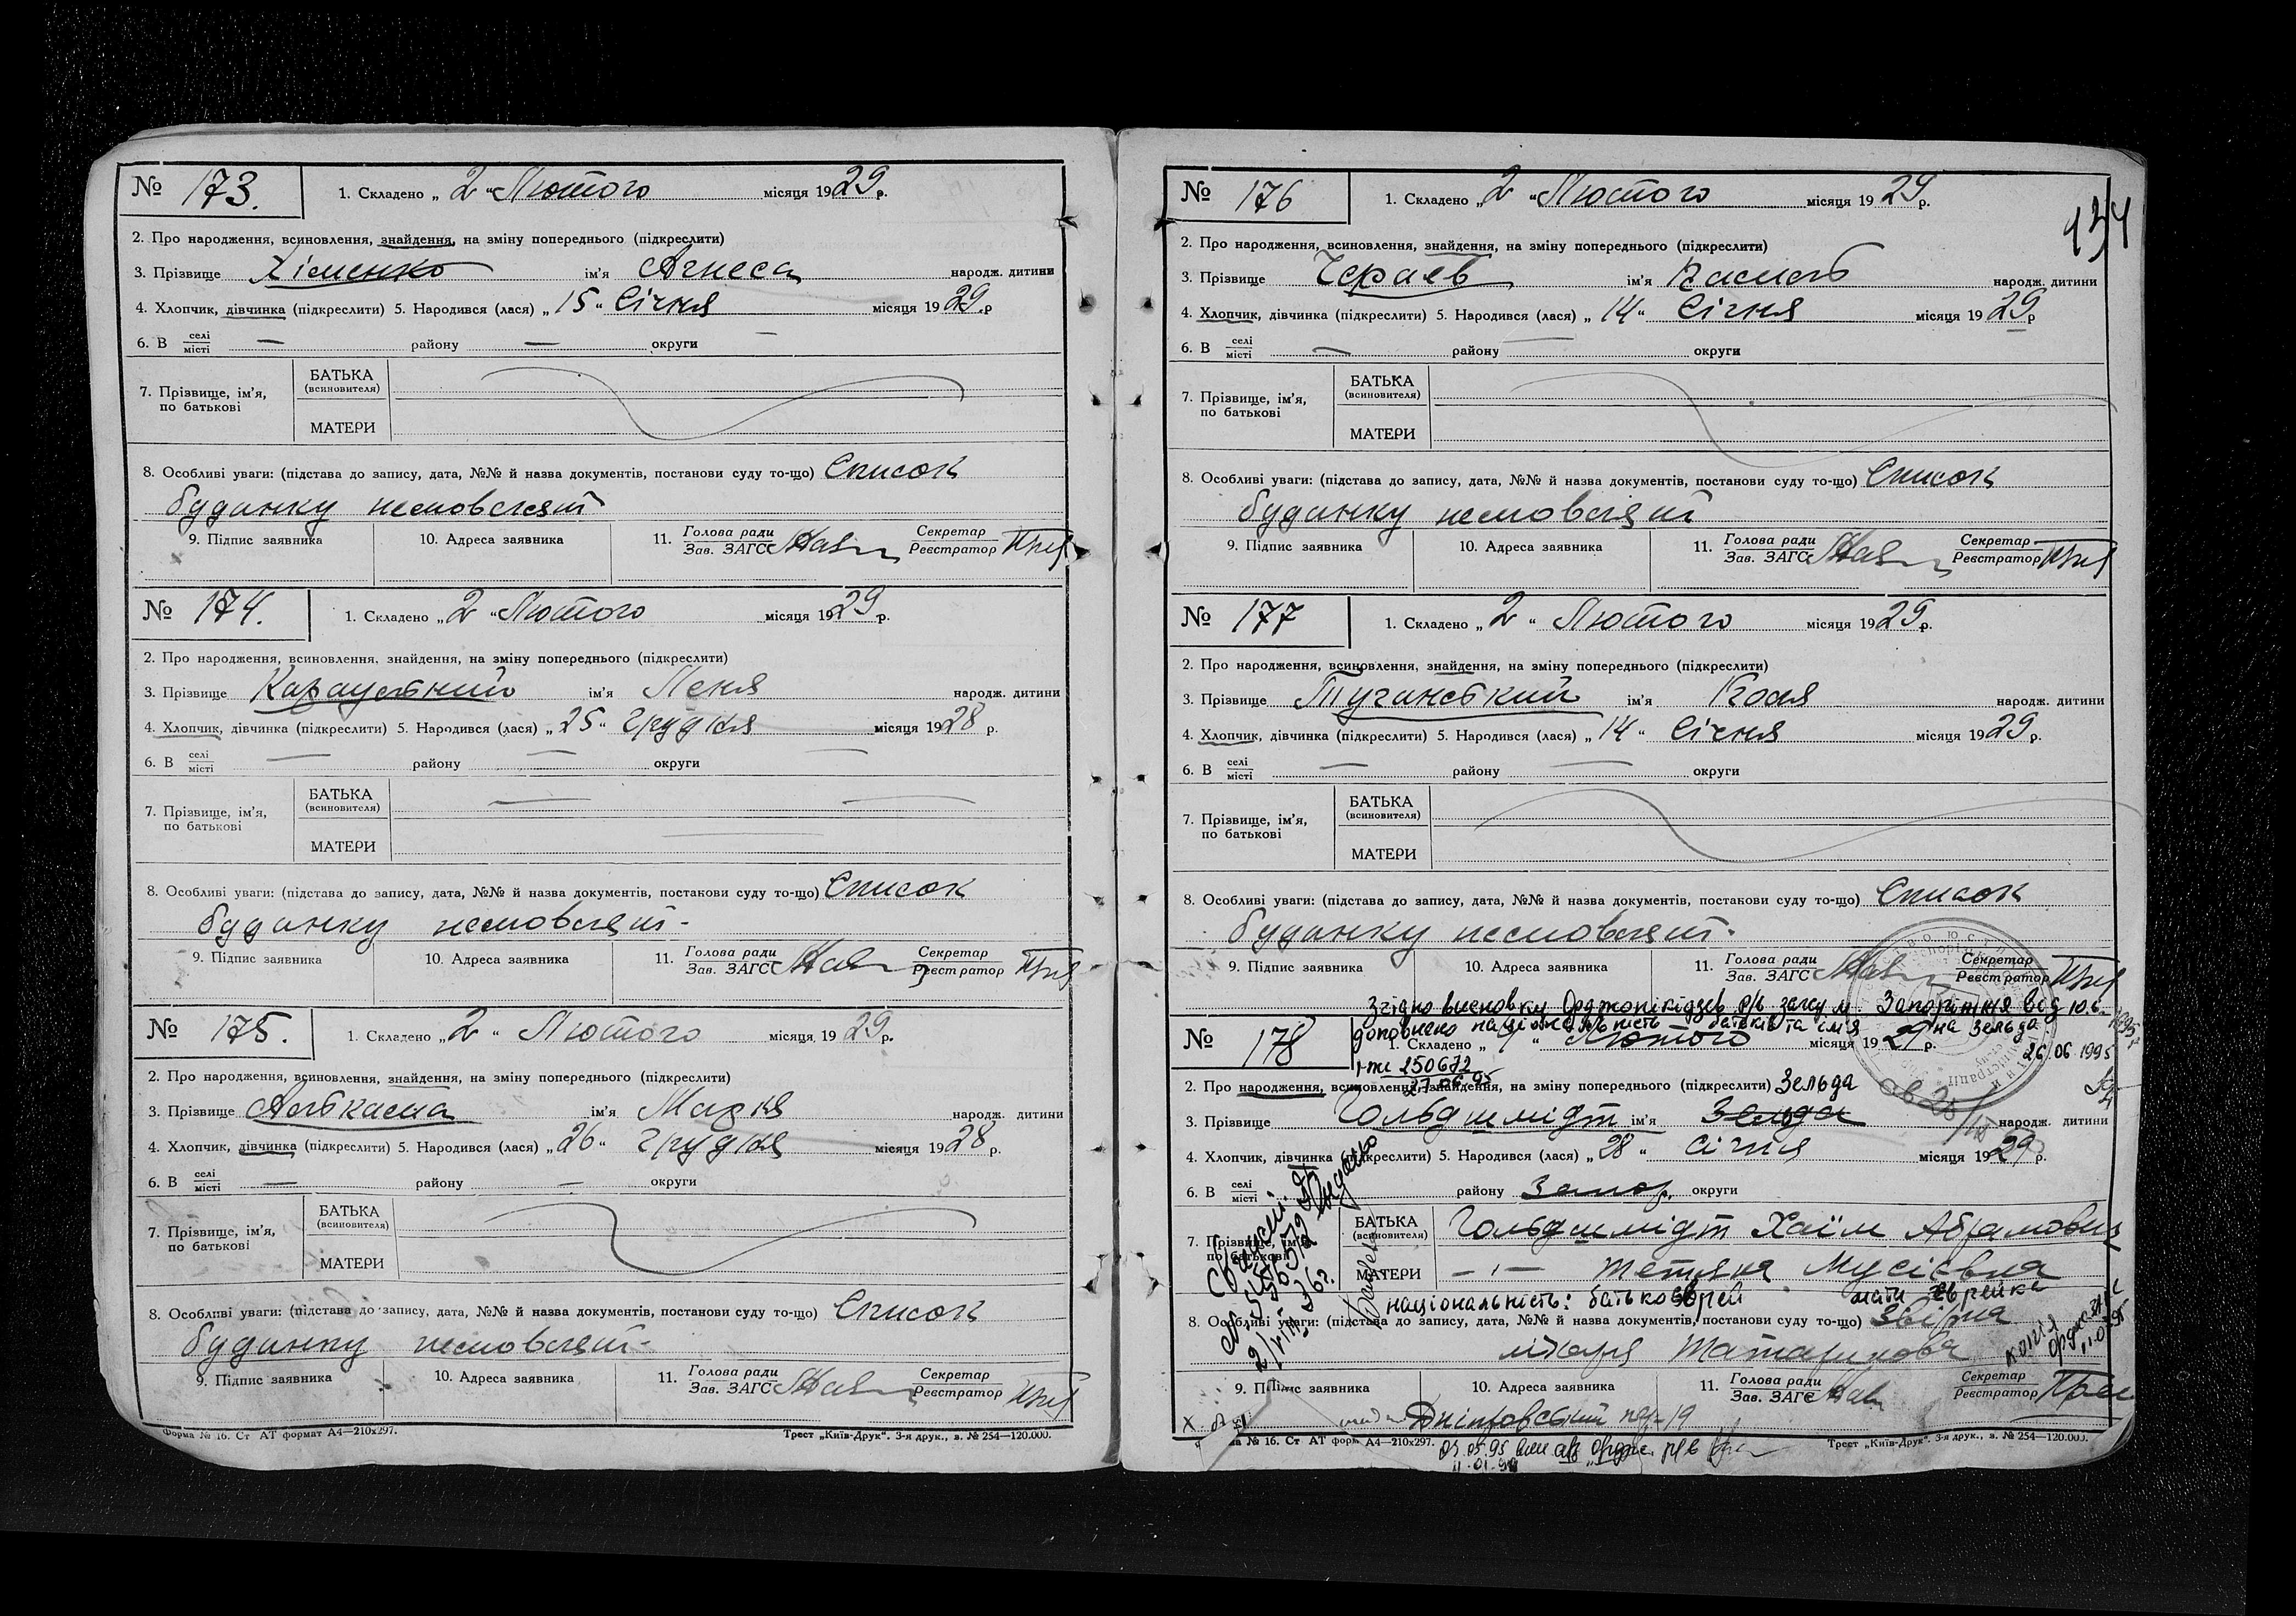 № 173. 1. Складено „ 2 “ Лютого місяця 1929 р.
2. Про народження, всиновлення, знайдення, на зміну попереднього (підкреслити)
3. Прізвище Хіменко ім’я Агнеса народж. дитини
4. Хлопчик, дівчинка (підкреслити) 5. Народився (лася) „ 15 “ Січня місяця 1929 р
6. В селі місті — району — округи —
7. Прізвище, ім’я, по батькові
БАТЬКА (всиновителя)
МАТЕРИ
8. Особливі уваги: (підстава до запису, дата, №№ й назва документів, постанови суду то-що) Список
будинку немовлят
9. Підпис заявника 10. Адреса заявника 11. Голова ради Зав. ЗАГС Секретар Реєстратор
№ 174. 1. Складено „ 2 “ Лютого місяця 1929 р.
2. Про народження, всиновлення, знайдення, на зміну попереднього (підкреслити)
3. Прізвище Караульний ім’я Леня народж. дитини
4. Хлопчик, дівчинка (підкреслити) 5. Народився (лася) „ 25 “ Грудня місяця 1928 р.
6. В селі місті — району — округи —
7. Прізвище, ім’я, по батькові
БАТЬКА (всиновителя) — —
МАТЕРИ —
8. Особливі уваги: (підстава до запису, дата, №№ й назва документів, постанови суду то-що) Список
будинку немовлят-
9. Підпис заявника 10. Адреса заявника 11. Голова ради Зав. ЗАГС Секретар Реєстратор
№ 175. 1. Складено „ 2 “ Лютого місяця 1929 р.
2. Про народження, всиновлення, знайдення, на зміну попереднього (підкреслити)
3. Прізвище ім’я Марія народж. дитини
4. Хлопчик, дівчинка (підкреслити) 5. Народився (лася) „ 26 “ Грудня місяця 1928 р.
6. В селі місті — району — округи
7. Прізвище, ім’я, по батькові
БАТЬКА (всиновителя)
МАТЕРИ
8. Особливі уваги: (підстава до запису, дата, №№ й назва документів, постанови суду то-що) Список
будинку немовлят-
9. Підпис заявника 10. Адреса заявника 11. Голова ради Зав. ЗАГС Секретар Реєстратор
Форма № 16. Ст АТ формат А4—210х297. Трест „Київ-Друк“. 3-я друк., з. № 254—120.000.
134
№ 176 1. Складено „ 2 “ Лютого місяця 1929 р.
2. Про народження, всиновлення, знайдення, на зміну попереднього (підкреслити)
3. Прізвище ім’я народж. дитини
4. Хлопчик, дівчинка (підкреслити) 5. Народився (лася) „ 14 “ Січня місяця 1929 р
6. В селі місті — району — округи
7. Прізвище, ім’я, по батькові
БАТЬКА (всиновителя)
МАТЕРИ
8. Особливі уваги: (підстава до запису, дата, №№ й назва документів, постанови суду то-що) Список
будинку немовлят
9. Підпис заявника 10. Адреса заявника 11. Голова ради Зав. ЗАГС Секретар Реєстратор
№ 177 1. Складено „ 2 “ Лютого місяця 1929 р.
2. Про народження, всиновлення, знайдення, на зміну попереднього (підкреслити)
3. Прізвище Туганський ім’я Коля народж. дитини
4. Хлопчик, дівчинка (підкреслити) 5. Народився (лася) „ 14 “ Січня місяця 1929 р.
6. В селі місті — району — округи
7. Прізвище, ім’я, по батькові
БАТЬКА (всиновителя)
МАТЕРИ
8. Особливі уваги: (підстава до запису, дата, №№ й назва документів, постанови суду то-що) Список
будинку немовлят-
9. Підпис заявника 10. Адреса заявника 11. Голова ради Зав. ЗАГС Секретар Реєстратор
Згідно висновку Орджонікідзев. р/в загсу м. Запоріжжя від 10.6.
доповнено національність батьків та ім’я на Зельда
№ 178 1. Складено „ “ Лютого місяця 1929 р.
26.06 1995
250672
27.06.95
2. Про народження, всиновлення, знайдення, на зміну попереднього (підкреслити) Зельда
3. Прізвище Гольдшмідт ім’я Зельда народж. дитини
4. Хлопчик, дівчинка (підкреслити) 5. Народився (лася) „ 28 “ Січня місяця 1929 р.
6. В селі місті району Запор. округи
7. Прізвище, ім’я, по батькові
БАТЬКА (всиновителя) Гольдшмідт Хаїм Абрамович
МАТЕРИ — „ — Тетяна Мусієвна
національність: батько єврей мати єврейка
8. Особливі уваги: (підстава до запису, дата, №№ й назва документів, постанови суду то-що)
лікаря Татаринова
копія
9. Підпис заявника 10. Адреса заявника 11. Голова ради Зав. ЗАГС Секретар Реєстратор
Дніпровський 19
№ 16. Ст АТ форм А4—210х297. Трест „Київ-Друк“. 3-я друк., з. № 254—120.000.